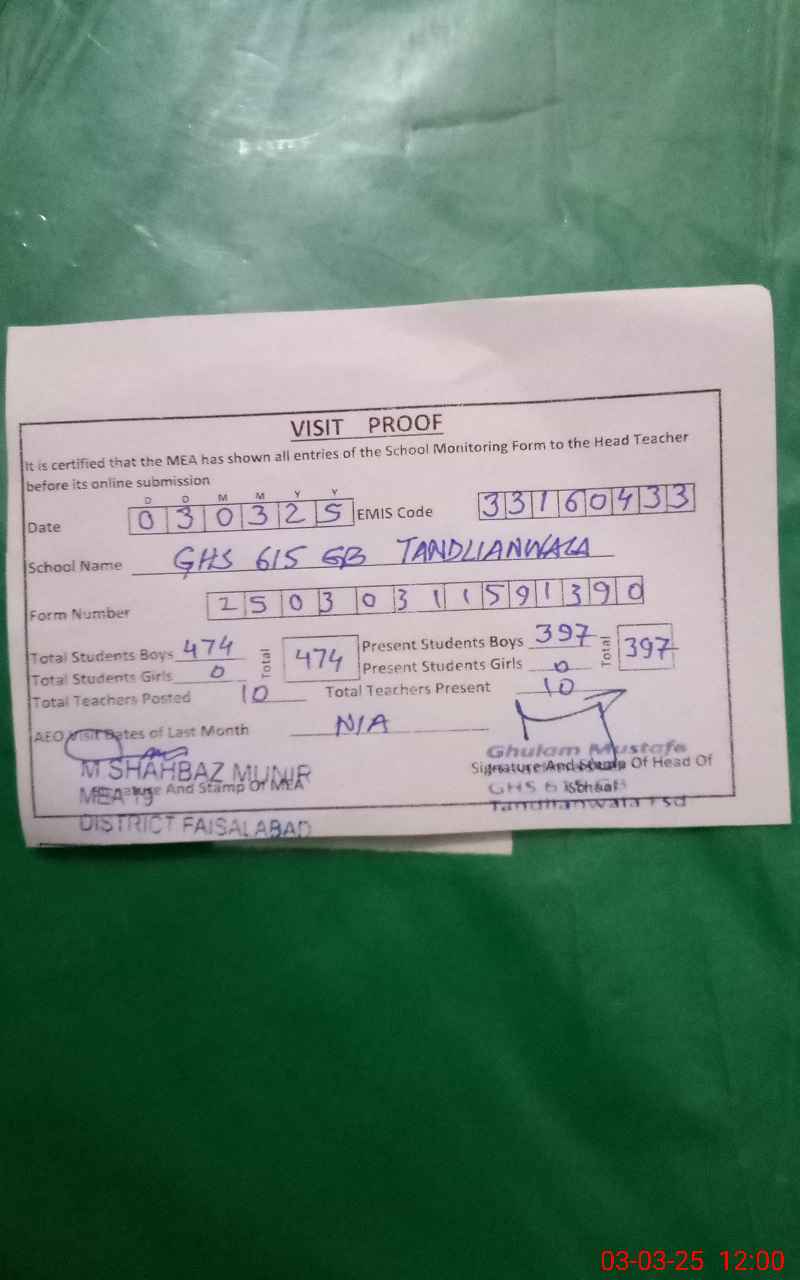 VISIT PROOF
It is certified that the MEA has shown all entries of the School Monitoring Form to the Head Teacher
before its online submission
D D M M Y Y
Date 0 3 0 3 2 5 EMIS Code 3 3 1 6 0 4 3 3
School Name GHS 615 GB TANDLIANWALA
Form Number 2 5 0 3 0 3 1 1 5 9 1 3 9 0
Total Students Boys 474 Total 474 Present Students Boys 397 Total 397
Total Students Girls 0 Present Students Girls 0
Total Teachers Posted 10 Total Teachers Present 10
AEO Visit Dates of Last Month N/A
Ghulam Mustafa
M SHAHBAZ MUNIR Signature And Stamp Of Head Of
MEA 19 And Stamp Of MEA GHS 615 GB School
DISTRICT FAISALABAD Tandlianwala Fsd
03-03-25 12:00